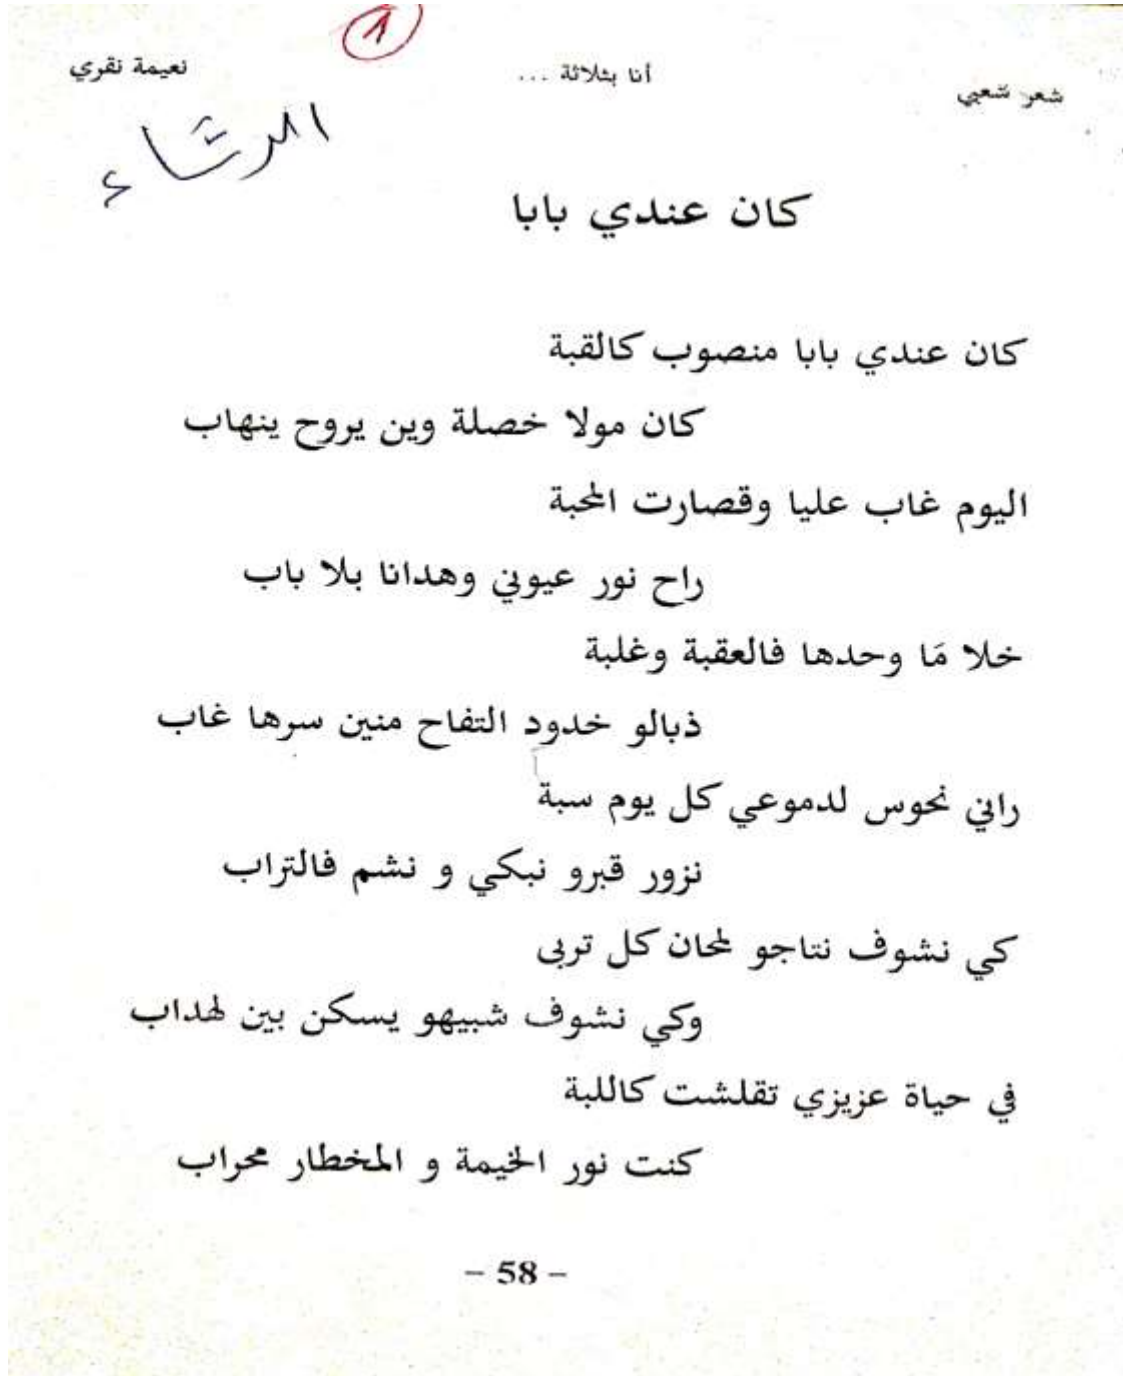 1
شعر شعبي أنا بثلاثة ... نعيمة نقري
الرثاء
كان عندي بابا
كان عندي بابا منصوب كالقبة
كان مولا خصلة وين يروح ينهاب
اليوم غاب عليا وقصارت المحبة
راح نور عيوني وهدانا بلا باب
خلا مَا وحدها فالعقبة وغلبة
ذبالو خدود التفاح منين سرها غاب
راني نحوس لدموعي كل يوم سبة
نزور قبرو نبكي و نشم فالتراب
كي نشوف نتاجو لمحان كل تربى
وكي نشوف شبيهو يسكن بين لهداب
في حياة عزيزي تقلشت كاللبة
كنت نور الخيمة و المخطار محراب
– 58 –